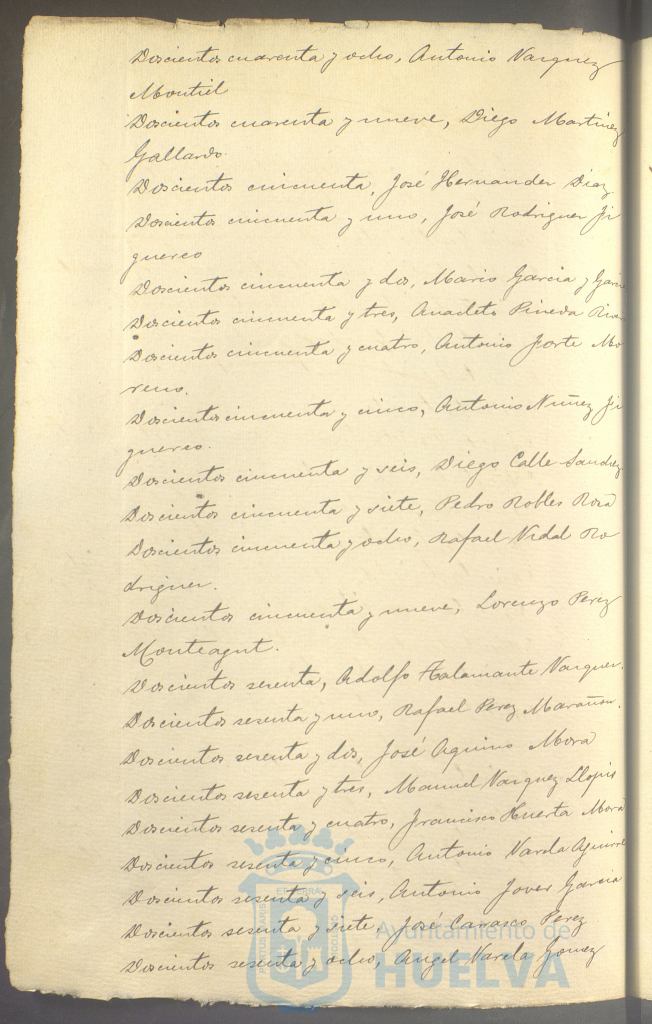 Doscientos cuarenta y ocho, Antonio Vazquez
Montiel
Doscientos cuarenta y nueve, Diego Martinez
Gallardo.
Doscientos cincuenta, José Hernandez Diaz
Doscientos cincuenta y uno, José Rodriguez Ji
guereo
Doscientos cincuenta y dos, Mario Garcia y Garc
Doscientos cincuenta y tres, Anacleto Pineda
Doscientos cincuenta y cuatro, Antonio Forte Mo
reno.
Doscientos cincuenta y cinco, Antonio Nuñez Ji
guereo.
Doscientos cincuenta y seis, Diego Calle Sanchez
Doscientos cincuenta y siete, Pedro Robles Rosa
Doscientos cincuenta y ocho, Rafael Vidal Ro
driguez.
Doscientos cincuenta y nueve, Lorenzo Perez
Monteagut.
Doscientos sesenta, Adolfo Talamante Vazquez.
Doscientos sesenta y uno, Rafael Perez Marañon.
Doscientos sesenta y dos, José Aquino Mora
Doscientos sesenta y tres, Manuel Vazquez Llopis
Doscientos sesenta y cuatro, Francisco Huerta Mora
Doscientos sesenta y cinco, Antonio Varela Aguirre
Doscientos sesenta y seis, Antonio Jover Garcia
Doscientos sesenta y siete, José Carasco Perez
Doscientos sesenta y ocho, Angel Varela Gomez
Ayuntamiento de
HUELVA